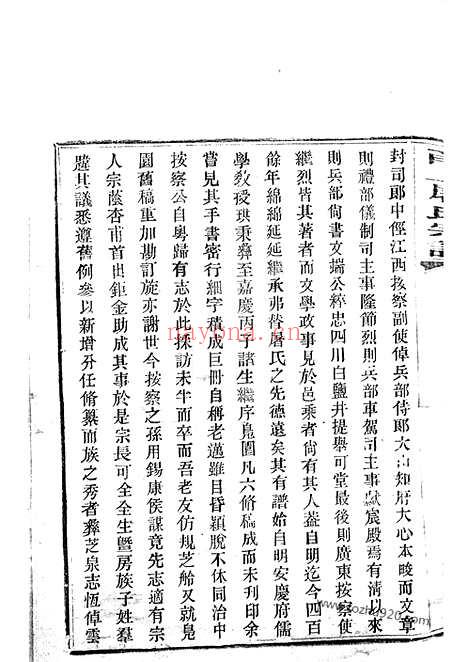 封司郎中經江西按察副使倬兵部侍郎大山知府大心本畯而文章
則禮部儀制司主事隆節烈則兵部車駕司主事獻宸殿焉有清以來
則兵部尚書文端公粹忠四川白鹽井提舉可堂最後則廣東按察使
繼烈皆其著者而文學政事見於邑乘者尙有其人蓋自明迄今四百
餘年綿綿延延繼承弗替屠氏之先德遠矣其有譜始自明安慶府儒
學教授珙秉彝至嘉慶丙子諸生繼序鳧園凡六脩稿成而未刊印余
嘗見其手書密行細字積成巨冊自稱老邁雖目昏穎脫不休同治中
按察公自粵歸有志於此採訪未半而卒而吾老友仿規芝舲又就鳧
園舊稿重加勘訂旋亦謝世今按察之孫用錫康侯謀竟先志適有宗
人宗蔭杏甫首出鉅金助成其事於是宗長可全全生暨房族子姓羣
韙其議悉遵舊例參以新增分任脩纂而族之秀者彝芝泉志恆倬雲
nayona.cn
www.fozhu920.com